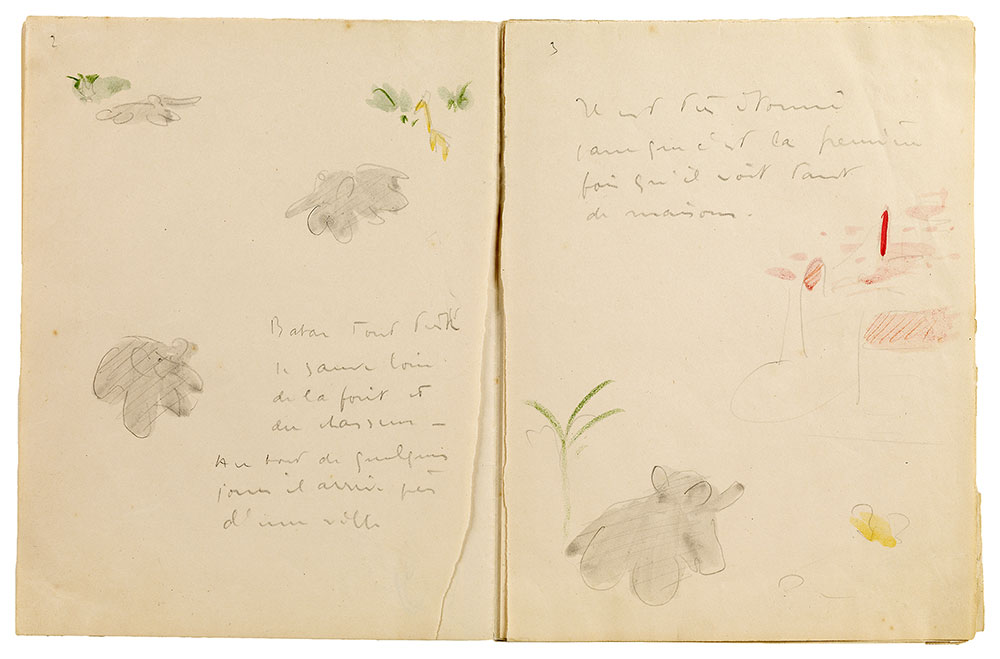 2
Babar tout triste
se sauve loin
de la forêt et
du chasseur –
Au bout de quelques
jours il arrive près
d'une ville
3
Il est très étonné
parce que c'est la première
fois qu'il voit tant
de maisons.